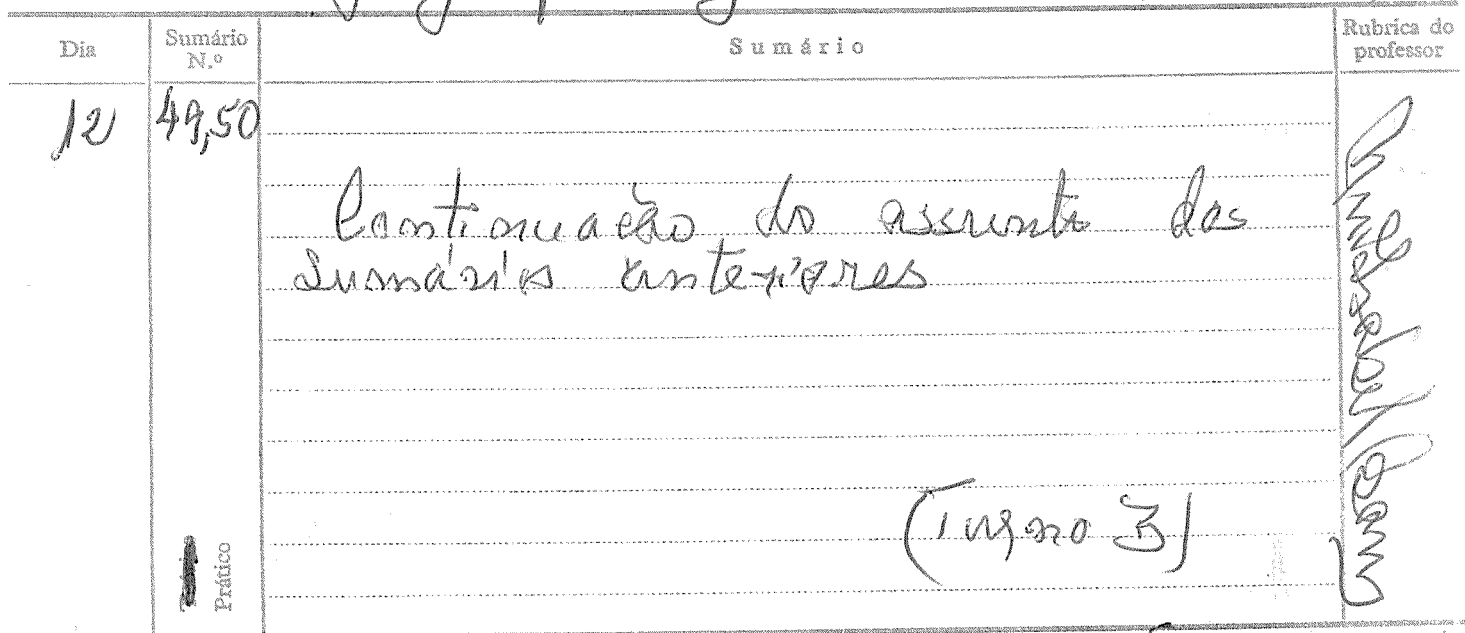 Dia Sumário N.º Sumário Rubrica do professor
12 49,50
Continuação do assunto dos
Sumários anteriores
(Turno 3)
Prático